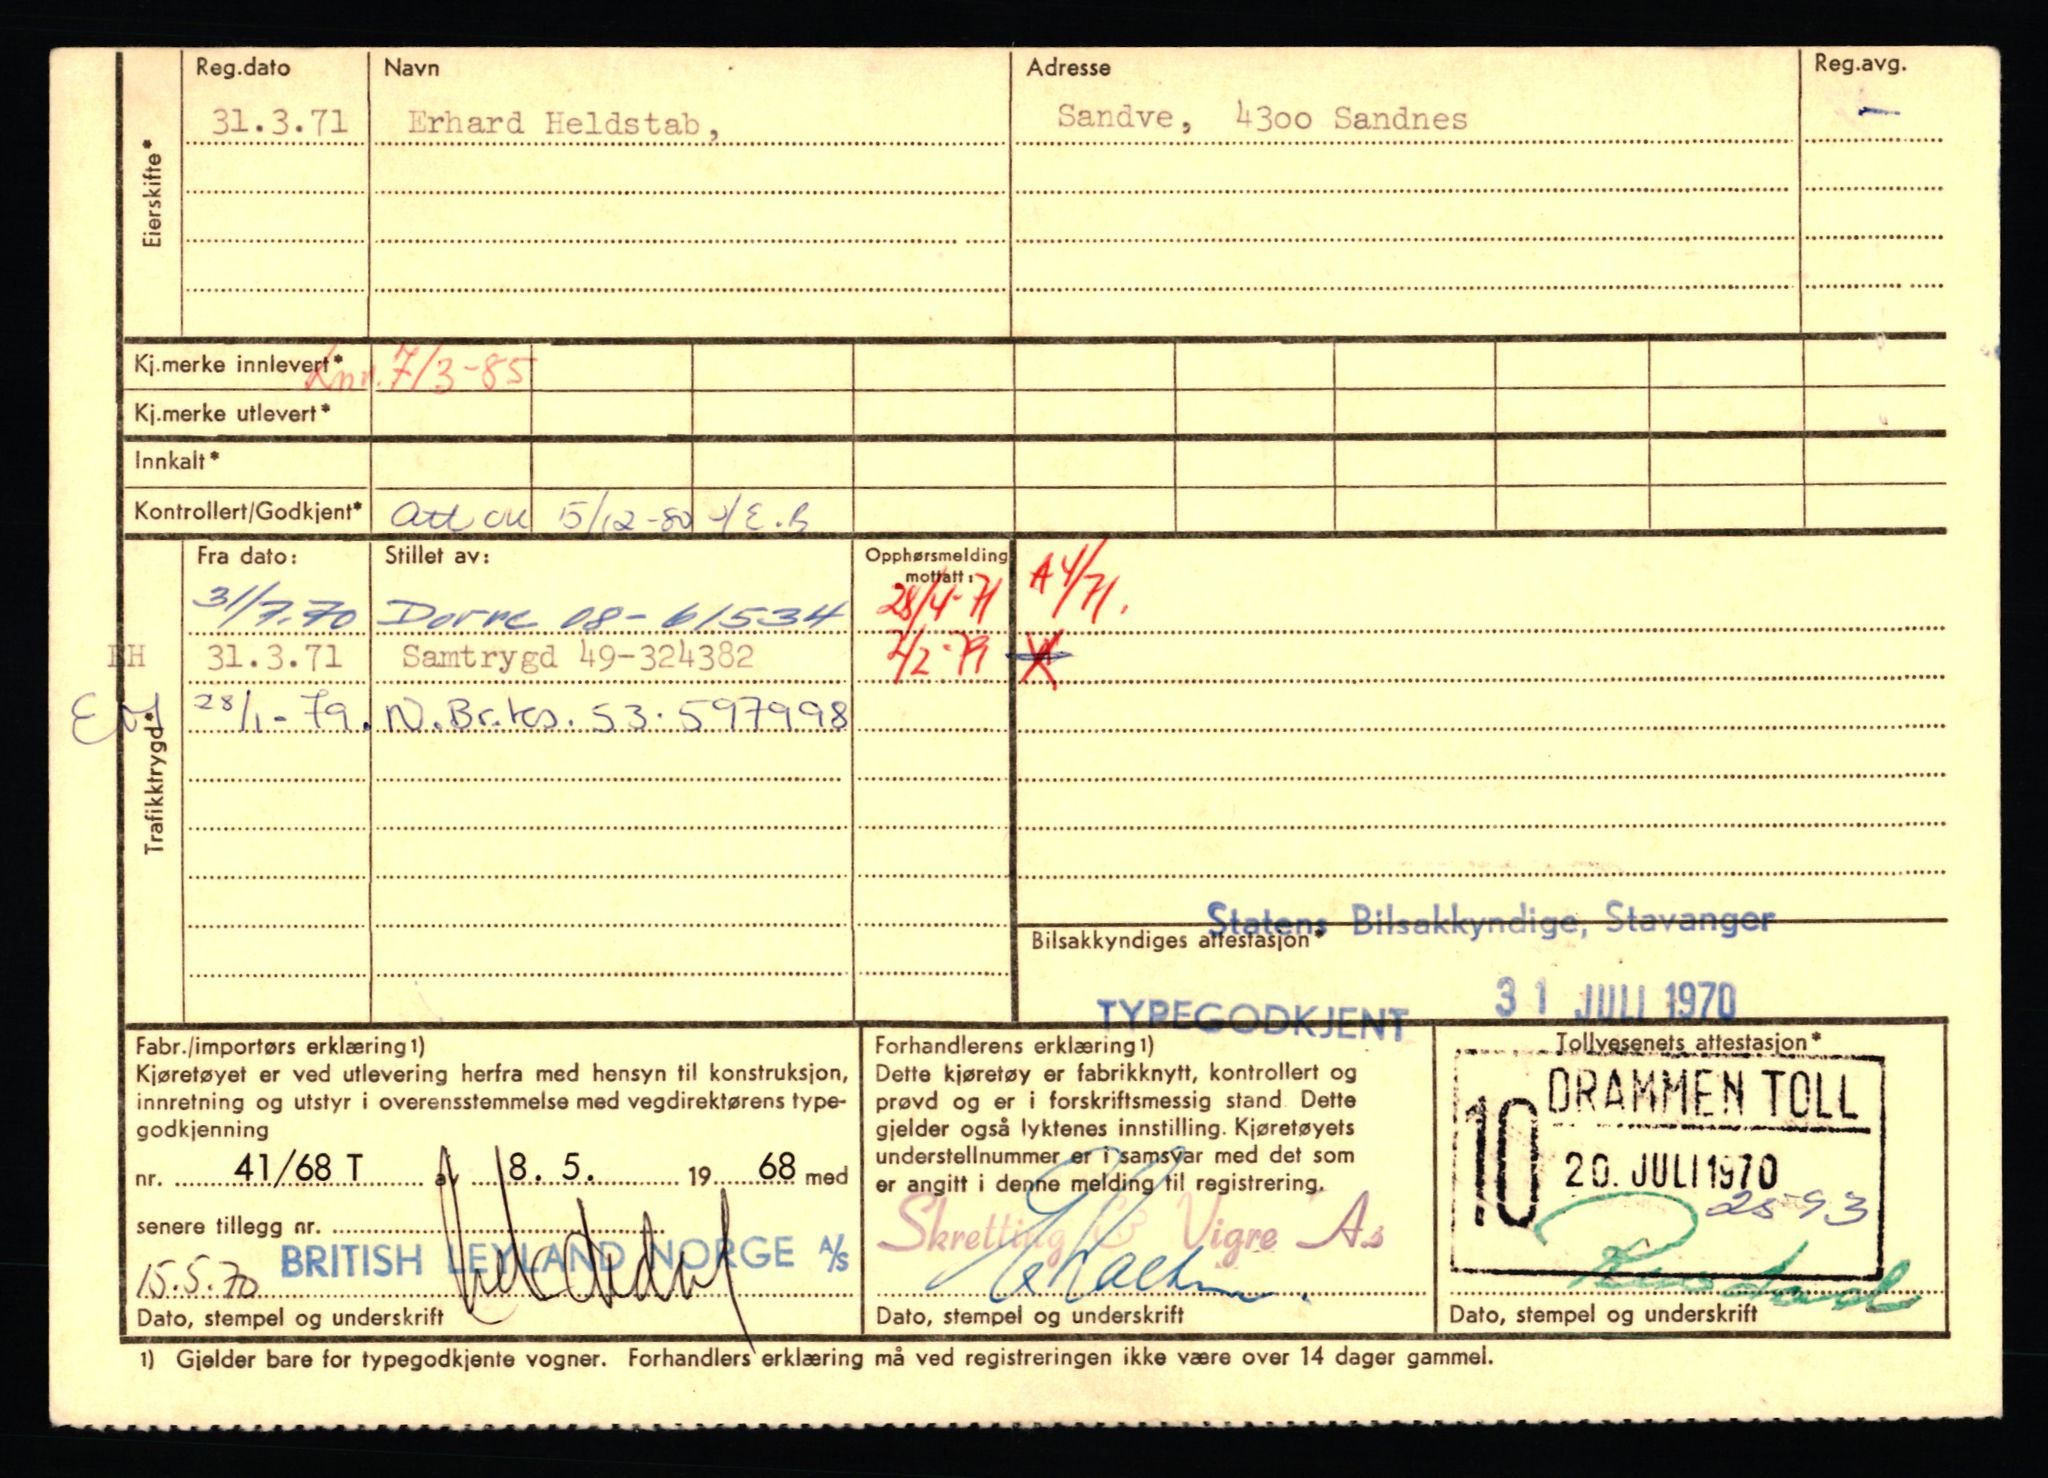 Reg.dato Navn Adresse Reg.avg.
31.3.71 Erhard Heldstab, Sandve, 4300 Sandnes –
Eierskifte*
Kj.merke innlevert* 7/3-85
Kj.merke utlevert*
Innkalt*
Kontrollert/Godkjent* Att ok 15/12-80 E.B
Fra dato: Stillet av: Opphørsmelding mottatt:
31/7.70 08-61534 28/4-71 A 4/71.
31.3.71 Samtrygd 49-324382 2/2-79
28/1-79. N.Br.kas. 53.597998
Trafikktrygd*
Statens Bilsakkyndige, Stavanger
Bilsakkyndiges attestasjon*
TYPEGODKJENT 31 JULI 1970
Fabr./importørs erklæring1)
Kjøretøyet er ved utlevering herfra med hensyn til konstruksjon,
innretning og utstyr i overensstemmelse med vegdirektørens type-
godkjenning
nr. 41/68 T av 8. 5. 19 68 med
senere tillegg nr.
15.5.70 BRITISH LEYLAND NORGE A/S
Dato, stempel og underskrift
Forhandlerens erklæring1)
Dette kjøretøy er fabrikknytt, kontrollert og
prøvd og er i forskriftsmessig stand. Dette
gjelder også lyktenes innstilling. Kjøretøyets
understellnummer er i samsvar med det som
er angitt i denne melding til registrering.
Skretting & Vigre A.s
Dato, stempel og underskrift
Tollvesenets attestasjon*
DRAMMEN TOLL
10
20. JULI 1970
2593
Dato, stempel og underskrift
1) Gjelder bare for typegodkjente vogner. Forhandlers erklæring må ved registreringen ikke være over 14 dager gammel.